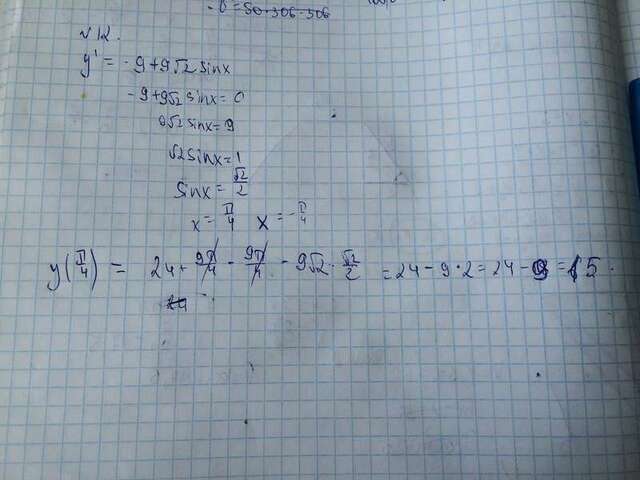 - 6 = 50·306-306
√12.
y' = -9+9√2 sinx
-9+9√2 sinx = 0
9√2 sinx = 9
√2 sinx = 1
sinx = √2/2
x = π/4 x = -π/4
y(π/4) = 24 + 9π/4 - 9π/4 - 9√2 · √2/2 = 24 - 9·2 = 24 - 9 = 15.
24